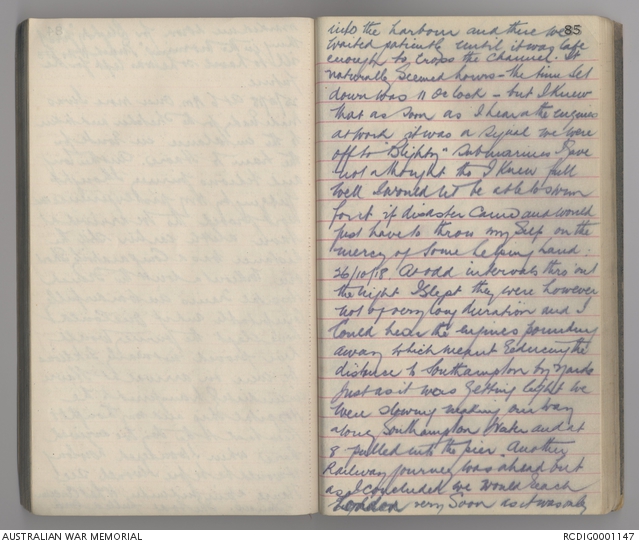 85
into the harbour and there we
waited patiently until it was safe
enough to cross the Channel. It
naturally seemed hours - the time set
down was 11 O'clock - but I knew
that as soon as I hear the engines
at work it was a signal we were
off to "Blighty" submarines I gave
not a thought tho I knew full
well I would not be able to swim
for it if disaster came and would
just have to throw myself on the
mercy of some helping hand.
26/10/18 At odd intervals thro out
the night I slept they were however
not of very long duration and I
could hear the engines pounding
away which meant reducing the
distance to Southampton by yards
Just as it was getting light we
were slowing making our way
along Southampton Water and at
8 pulled into the pier. Another
Railway journey was ahead but
as I concluded we would reach
London very soon as it was only
AUSTRALIAN WAR MEMORIAL
RCDIG0001147